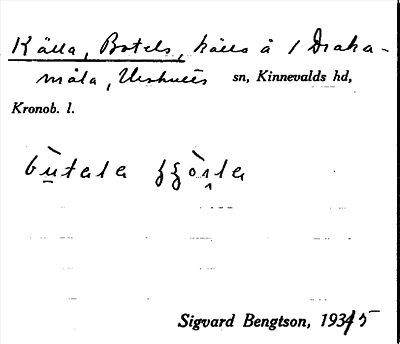 Källa, Botels, källa å 1 Draka-
måla, Urshults sn, Kinnevalds hd,
Kronob. l.
Sigvard Bengtson, 1935